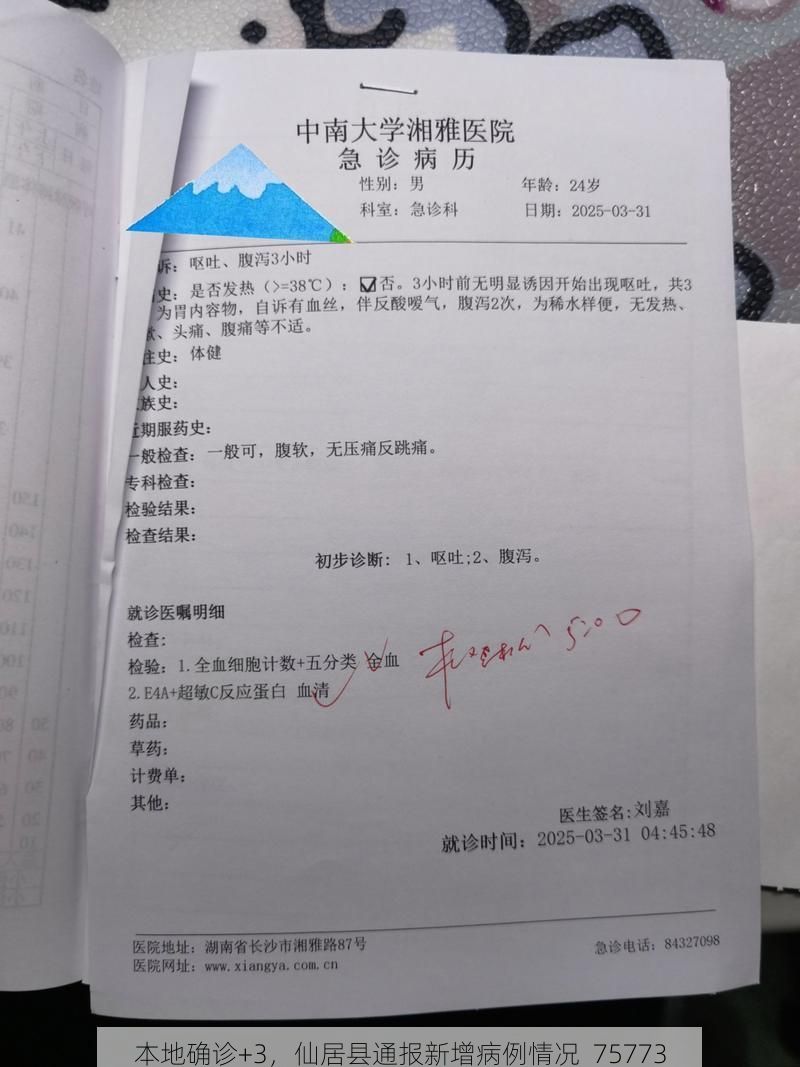 中南大学湘雅医院
急诊病历
性别：男 年龄：24岁
科室：急诊科 日期：2025-03-31
诉：呕吐、腹泻3小时
史：是否发热（>=38℃）：☑否。3小时前无明显诱因开始出现呕吐，共3
为胃内容物，自诉有血丝，伴反酸嗳气，腹泻2次，为稀水样便，无发热、
、头痛、腹痛等不适。
往史：体健
人史：
族史：
近期服药史：
一般检查：一般可，腹软，无压痛反跳痛。
专科检查：
检验结果：
检查结果：
初步诊断：1、呕吐;2、腹泻。
就诊医嘱明细
检查：
检验：1.全血细胞计数+五分类 全血
2.E4A+超敏C反应蛋白 血清
5:00
药品：
草药：
计费单：
其他：
医生签名:刘嘉
就诊时间：2025-03-31 04:45:48
医院地址：湖南省长沙市湘雅路87号 急诊电话：84327098
医院网址：www.xiangya.com.cn
本地确诊+3，仙居县通报新增病例情况 75773